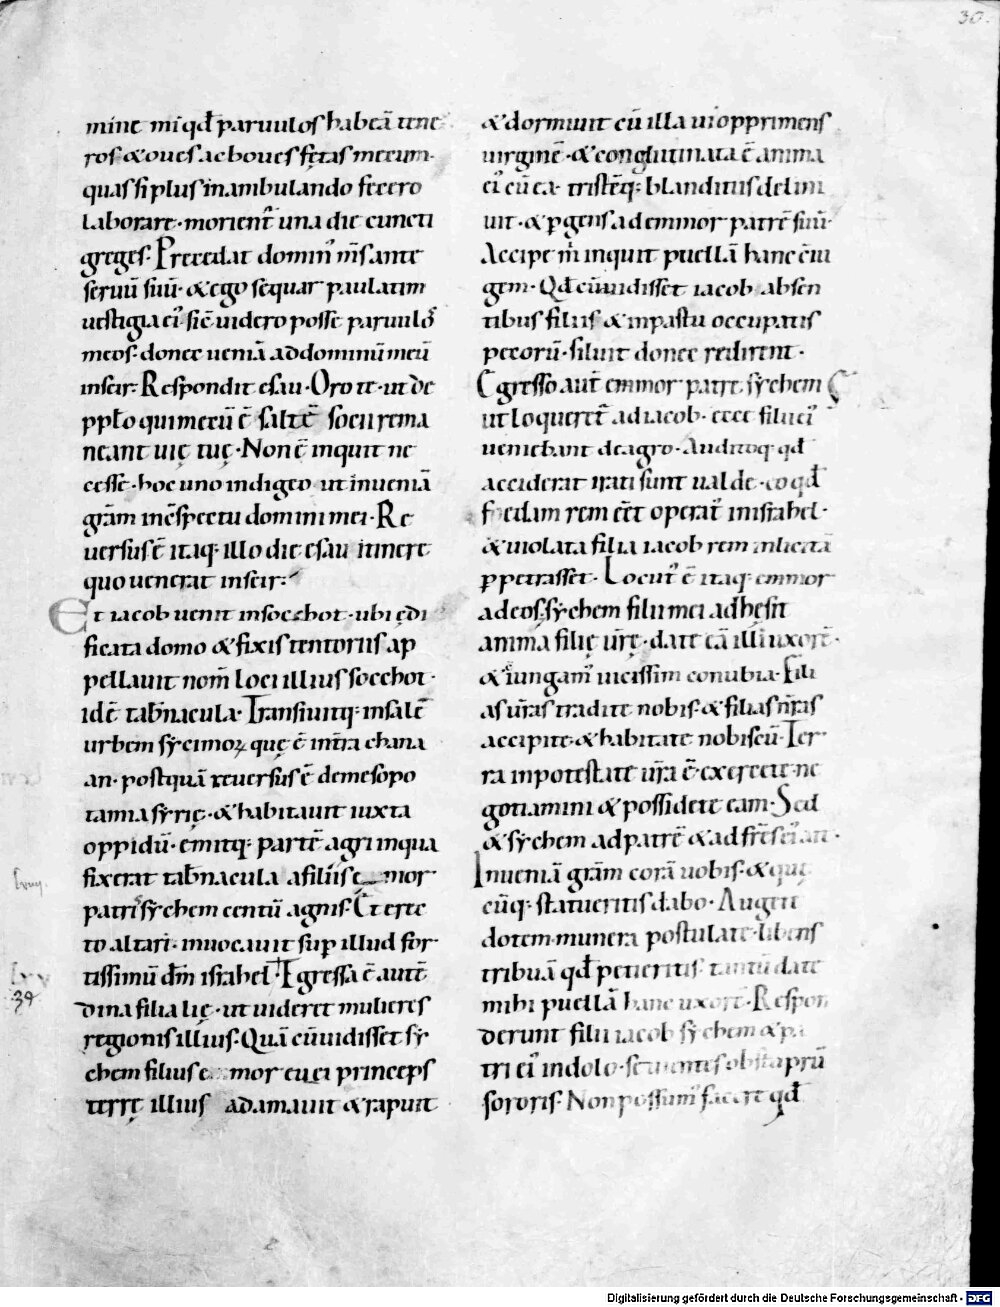 30.
mine mi qđ paruulos habeā tene
ros & oues ac boues fętas mecum·
quas si plus in ambulando fecero
laborare· morient̄ una die cuncti
greges· Precedat domin' m̄s ante
seruū suū· & ego sequar paulatim
uestigia ei' sic̄ uidero posse paruulos
meos· donec ueniā ad dominū meū
inseir· Respondit esau· Oro te· ut de
pp̄lo qui mecū ē saltē socii rema
neant uię tuę· Non ē inquit ne
cesse· hoc uno indigeo ut inueniā
grām in c̄spectu domini mei· Re
uersus ē itaq; illo die esau itinere
quo uenerat inseir·
Et iacob uenit insocchot· ubi ędi
ficata domo & fixis tentoriis ap
pellauit nom̄ loci illius socchot·
idē tab̄nacula· Transiuitq; insalē
urbem sycimoꝝ quę ē int̄ra chana
an· postquā reuersus ē de mesopo
tamia syrię· & habitauit iuxta
oppidū· emitq; partē agri inqua
fixerat tab̄nacula afiliis emor
patris sychem centū agnis· Et erec
to altari· inuocauit sup̄ illud for
tissimū dm̄ israhel· Egressa ē autē
lxv
39
dina filia lię· ut uideret mulieres
regionis illius· Quā cū uidisset sy
chem filius emor euei princeps
terrę illius adamauit & rapuit
& dormiuit cū illa ui opprimens
uirginē· & conglutinata ē anima
ei' cū ea· tristēq; blanditiis delini
uit· & ꝑgens ad emmor patrē suū·
Accipe m̄ inquit puellā hanc c̄iu
gem· Qđ cū uidisset iacob absen
tibus filiis & in pastu occupatis
pecorū· siluit donec redirent·
Egresso aut̄ emmor patre sychem
ut loqueret̄ ad iacob· ecce filii ei'
ueniebant de agro· Auditoq; qđ
acciderat irati sunt ualde· eo qđ
foedam rem eēt operat' in israhel·
& uiolata filia iacob rem inlicitā
ꝑpetrasset· Locut' ē itaq; emmor
ad eos· sychem filii mei adhęsit
anima filię ur̄ę· date eā illi uxorē·
& iungam' uicissim conubia· Fili
as ur̄as tradite nobis· & filias nr̄as
accipite· & habitate nobiscū· Ter
ra inpotestate ur̄a ē· exercete ne
gotiamini & possidete eam· Sed
& sychem ad patrē & ad fr̄es ei' ait·
Inueniā grām corā uobis· & quę
cūq; statueritis dabo· Augete
dotem· munera postulate· libens
tribuā qđ petieritis· tantū date
mihi puellā hanc uxorē· Respon
derunt filii iacob sychem & pa
tri ei' indolo· seruientes ob stuprū
sororis· Non possum' facere qđ
Digitalisierung gefördert durch die Deutsche Forschungsgemeinschaft - DFG